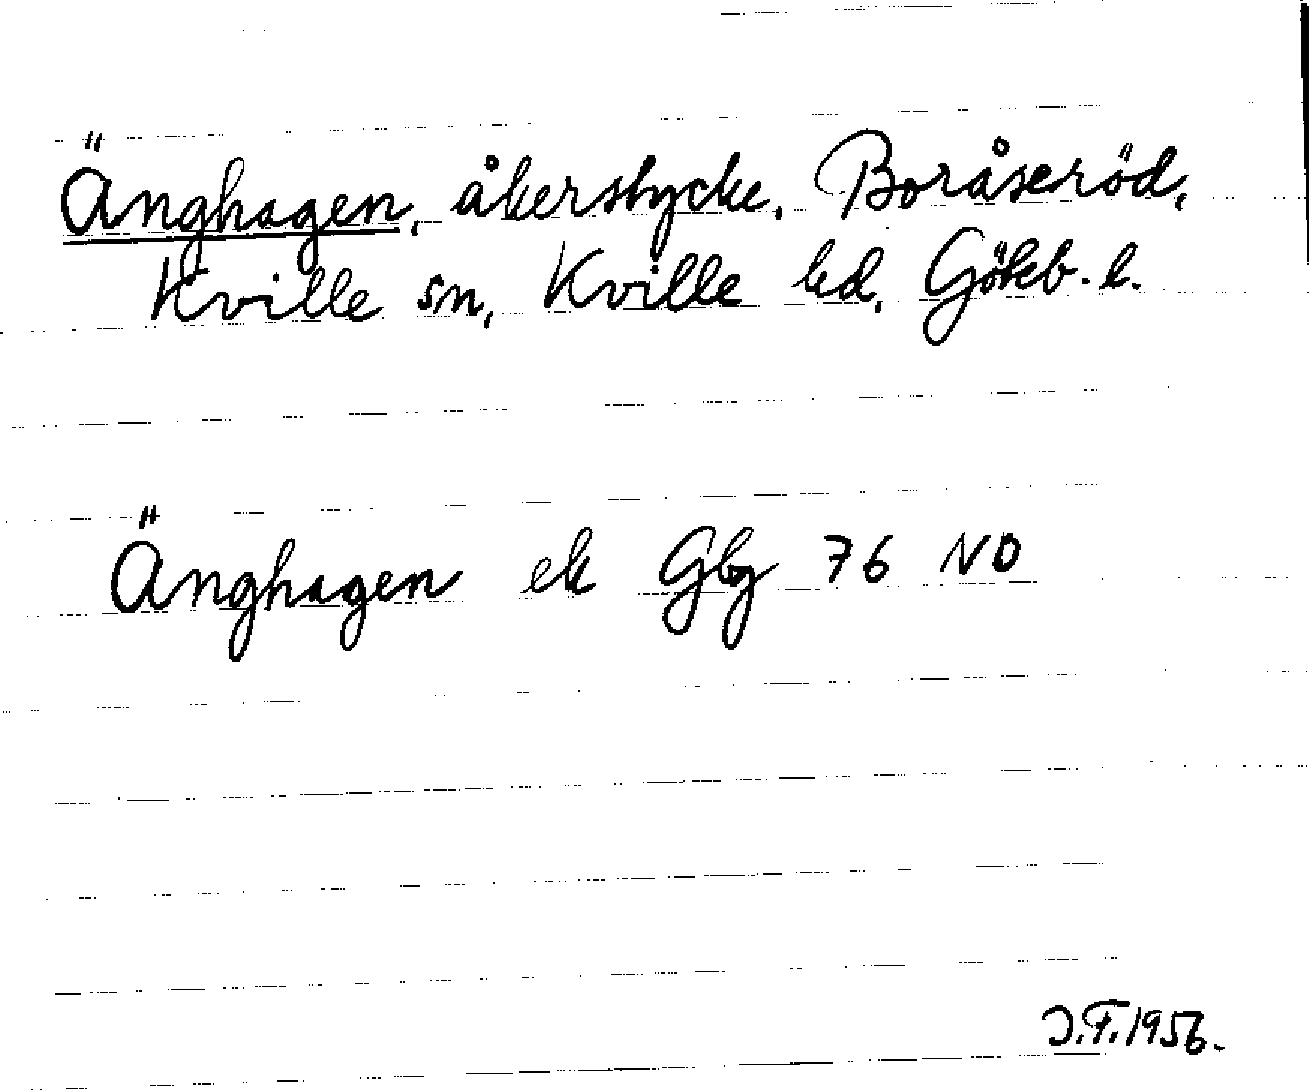 Änghagen, åkerstycke, Boråseröd,
Kville sn, Kville hd, Göteb. l.
Änghagen ek Gbg 76 NO
J.F. 1956.